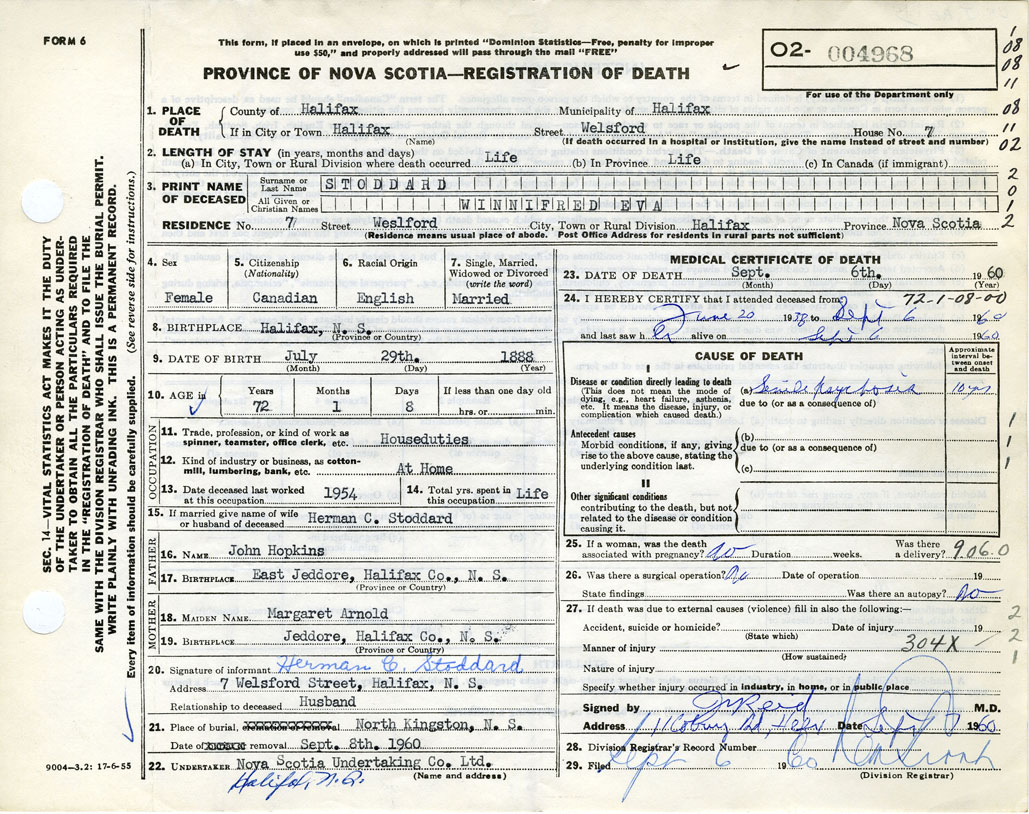 FORM 6
This form, if placed in an envelope, on which is printed "Dominion Statistics—Free, penalty for improper
use $50," and properly addressed will pass through the mail "FREE"
PROVINCE OF NOVA SCOTIA—REGISTRATION OF DEATH
O2- 004968
For use of the Department only
1
08
08
11
08
11
02
2
0
1
2
SEC. 14—VITAL STATISTICS ACT MAKES IT THE DUTY
OF THE UNDERTAKER OR PERSON ACTING AS UNDER-
TAKER TO OBTAIN ALL THE PARTICULARS REQUIRED
IN THE "REGISTRATION OF DEATH" AND TO FILE THE
SAME WITH THE DIVISION REGISTRAR WHO SHALL ISSUE THE BURIAL PERMIT.
WRITE PLAINLY WITH UNFADING INK. THIS IS A PERMANENT RECORD.
Every item of information should be carefully supplied. (See reverse side for instructions.)
1. PLACE OF DEATH
County of Halifax Municipality of Halifax
If in City or Town Halifax Street Welsford House No. 7
(Name) (If death occurred in a hospital or institution, give the name instead of street and number)
2. LENGTH OF STAY (in years, months and days)
(a) In City, Town or Rural Division where death occurred Life (b) In Province Life (c) In Canada (if immigrant)
3. PRINT NAME OF DECEASED
Surname or Last Name STODDARD
All Given or Christian Names WINNIFRED EVA
RESIDENCE No. 7 Street Weslford City, Town or Rural Division Halifax Province Nova Scotia
(Residence means usual place of abode. Post Office Address for residents in rural parts not sufficient)
4. Sex
Female
5. Citizenship
(Nationality)
Canadian
6. Racial Origin
English
7. Single, Married,
Widowed or Divorced
(write the word)
Married
8. BIRTHPLACE Halifax, N. S.
(Province or Country)
9. DATE OF BIRTH July 29th. 1888
(Month) (Day) (Year)
10. AGE in
Years Months Days If less than one day old
72 1 8 hrs. or min.
OCCUPATION
11. Trade, profession, or kind of work as
spinner, teamster, office clerk, etc. Houseduties
12. Kind of industry or business, as cotton-
mill, lumbering, bank, etc. At Home
13. Date deceased last worked
at this occupation 1954
14. Total yrs. spent in
this occupation Life
15. If married give name of wife
or husband of deceased Herman C. Stoddard
FATHER
16. NAME John Hopkins
17. BIRTHPLACE East Jeddore, Halifax Co., N. S.
(Province or Country)
MOTHER
18. MAIDEN NAME Margaret Arnold
19. BIRTHPLACE Jeddore, Halifax Co., N. S.
(Province or Country)
20. Signature of informant Herman C. Stoddard
Address 7 Welsford Street, Halifax, N. S.
Relationship to deceased Husband
21. Place of burial, North Kingston, N. S.
Date of removal Sept. 8th. 1960
22. UNDERTAKER Nova Scotia Undertaking Co. Ltd.
(Name and address)
Halifax, N.S.
9004—3.2: 17-6-55
MEDICAL CERTIFICATE OF DEATH
23. DATE OF DEATH Sept. 6th. 1960
(Month) (Day) (Year)
24. I HEREBY CERTIFY that I attended deceased from 72-1-08-00
June 20 1958 to Sept 6 1960
and last saw her alive on Sept 6 1960
CAUSE OF DEATH
Approximate
interval be-
tween onset
and death
I
Disease or condition directly leading to death
(This does not mean the mode of
dying, e.g., heart failure, asthenia,
etc. It means the disease, injury, or
complication which caused death.)
(a) Senile Psychosis 10 yrs
due to (or as a consequence of)
Antecedent causes
Morbid conditions, if any, giving
rise to the above cause, stating the
underlying condition last.
(b)
due to (or as a consequence of)
(c)
II
Other significant conditions
contributing to the death, but not
related to the disease or condition
causing it.
1
1
1
25. If a woman, was the death
associated with pregnancy? No Duration weeks.
Was there
a delivery? 906.0
26. Was there a surgical operation? No Date of operation 19
State findings Was there an autopsy? No
27. If death was due to external causes (violence) fill in also the following:—
Accident, suicide or homicide? Date of injury 19
(State which)
Manner of injury 304X
(How sustained)
Nature of injury
Specify whether injury occurred in industry, in home, or in public place
2
2
1
Signed by M.D.
Address Date Sept 7 1960
28. Division Registrar's Record Number
29. Filed Sept 6 1960
(Division Registrar)